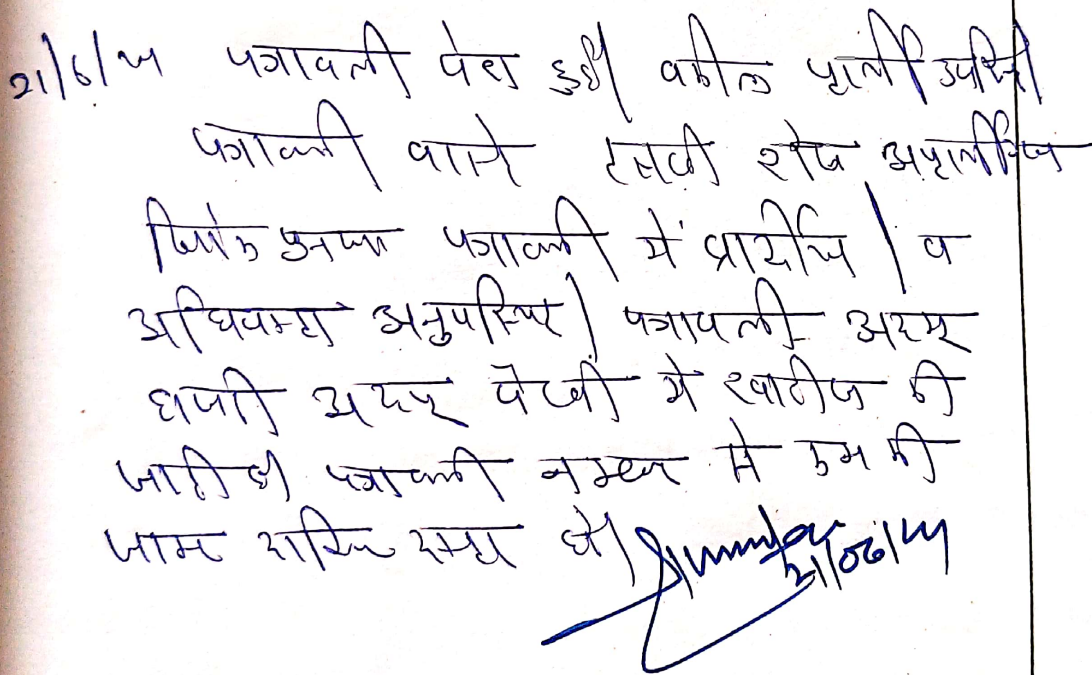 21/6/24 पत्रावली पेश हुई। वकील प्रार्थी उपस्थित।
पत्रावली वास्ते तलबी शेष अप्रार्थीगण
पत्रावली में प्रार्थीगण । व
अधिवक्ता अनुपस्थित। पत्रावली अदम
हाजरी अदम पैरवी में खारीज की
जाती है। पत्रावली नम्बर से कम की
जाकर दाखिल दफ्तर हो।
21/06/24